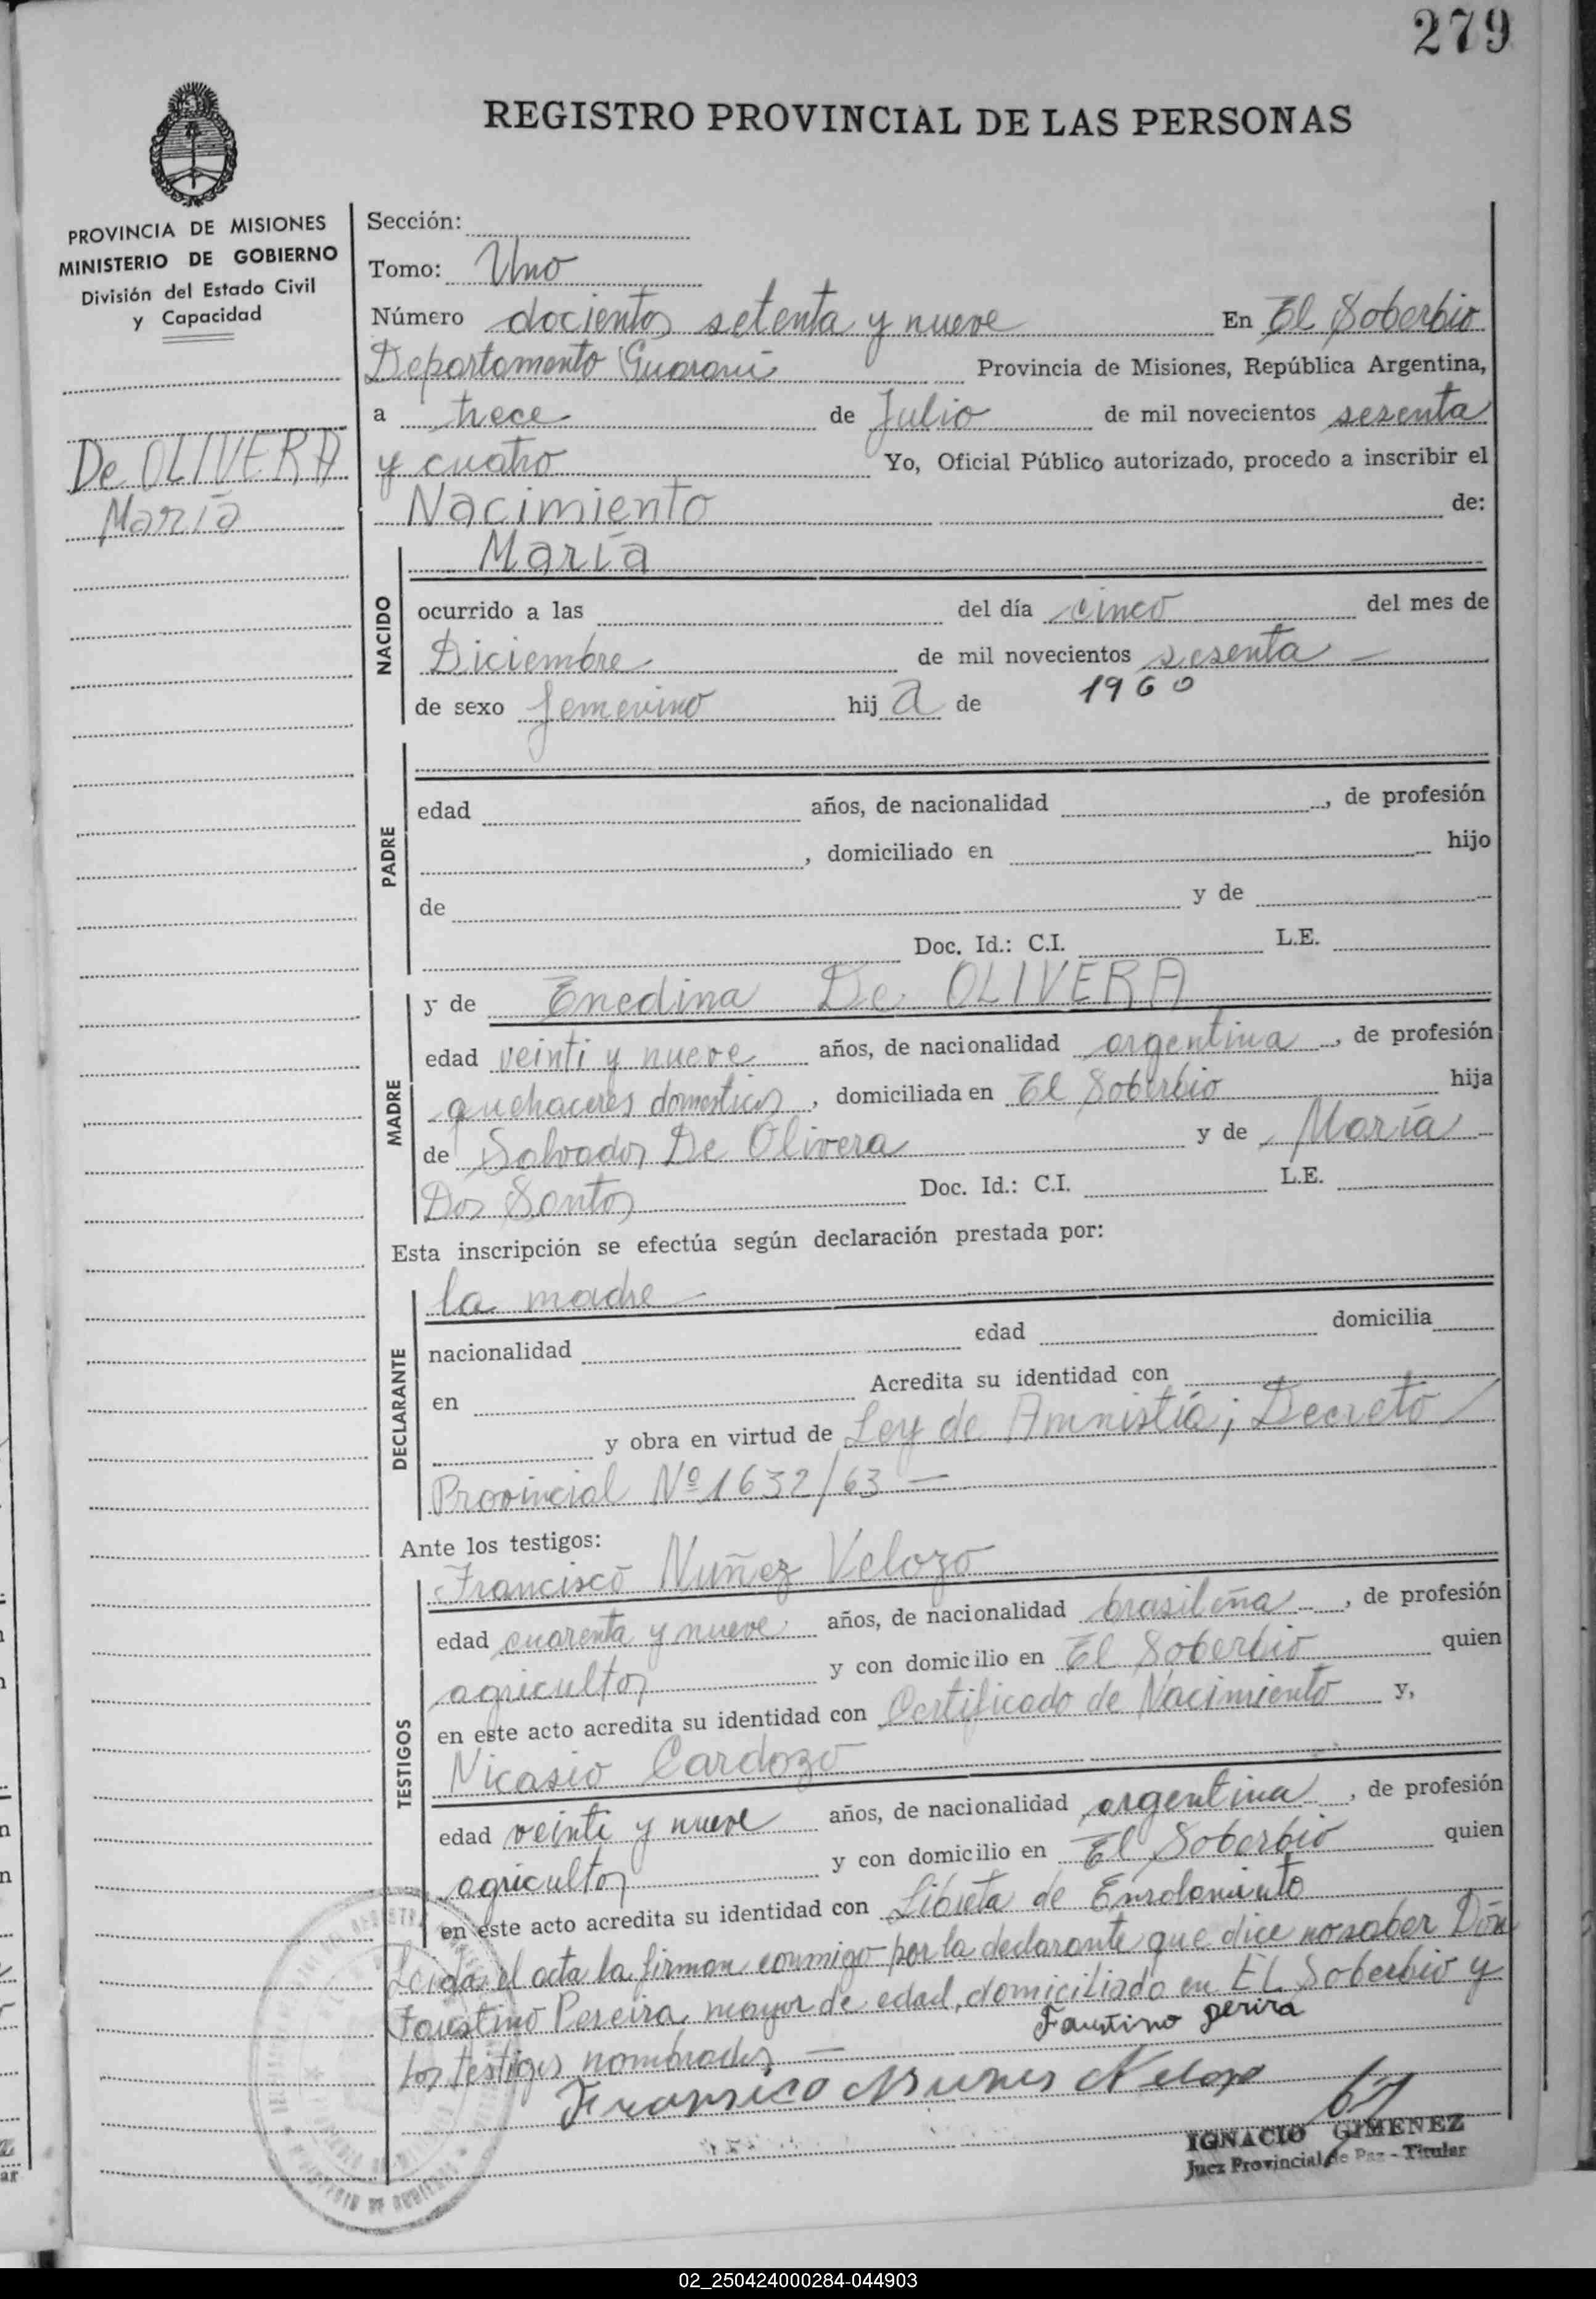 279
REGISTRO PROVINCIAL DE LAS PERSONAS
PROVINCIA DE MISIONES
MINISTERIO DE GOBIERNO
División del Estado Civil
y Capacidad
De OLIVERA
María
Sección:
Tomo: Uno
Número docientos setenta y nueve En El Soberbio
Departamento Guaraní Provincia de Misiones, República Argentina,
a trece de Julio de mil novecientos sesenta
y cuatro Yo, Oficial Público autorizado, procedo a inscribir el
Nacimiento de:
NACIDO
María
ocurrido a las del día cinco del mes de
Diciembre de mil novecientos sesenta
1960
de sexo femenino hij a de
PADRE
edad años, de nacionalidad , de profesión
, domiciliado en hijo
de y de
Doc. Id.: C.I. L.E.
MADRE
y de Enedina De OLIVERA
edad veinti y nueve años, de nacionalidad argentina , de profesión
quehaceres domesticos , domiciliada en El Soberbio hija
de Salvador De Olivera y de María
Dos Santos Doc. Id.: C.I. L.E.
Esta inscripción se efectúa según declaración prestada por:
DECLARANTE
la madre
nacionalidad edad domicilia
en Acredita su identidad con
y obra en virtud de Ley de Amnistía; Decreto
Provincial Nº 1632/63
Ante los testigos:
TESTIGOS
Francisco Nuñez Velozo
edad cuarenta y nueve años, de nacionalidad brasileña , de profesión
agricultor y con domicilio en El Soberbio quien
en este acto acredita su identidad con Certificado de Nacimiento y,
Nicasio Cardozo
edad veinti y nueve años, de nacionalidad argentina , de profesión
agricultor y con domicilio en El Soberbio quien
en este acto acredita su identidad con Libreta de Enrolamiento
Leida el acta la firman conmigo por la declarante que dice no saber Don
Faustino Pereira, mayor de edad, domiciliado en EL Soberbio y
los testigos nombrados
Faustino perira
IGNACIO GIMENEZ
Juez Provincial de Paz - Titular
02_250424000284-044903